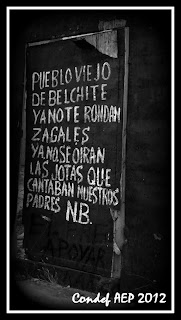 PUEBLO VIEJO
DE BELCHITE
YA NO TE RONDAN
ZAGALES
YA NO SE OIRAN
LAS JOTAS QUE
CANTABAN NUESTROS
PADRES N.B.
APOYAR
Condof AEP 2012